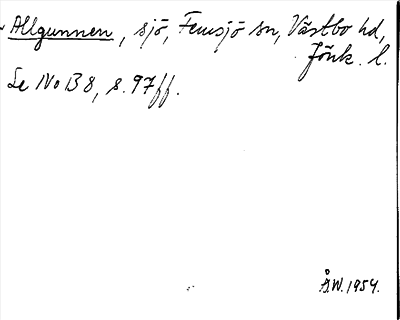 Allgunnen, sjö, Femsjö sn, Västbo hd,
Jönk. l.
Se No B 8, s. 97ff.
Å.W. 1954.